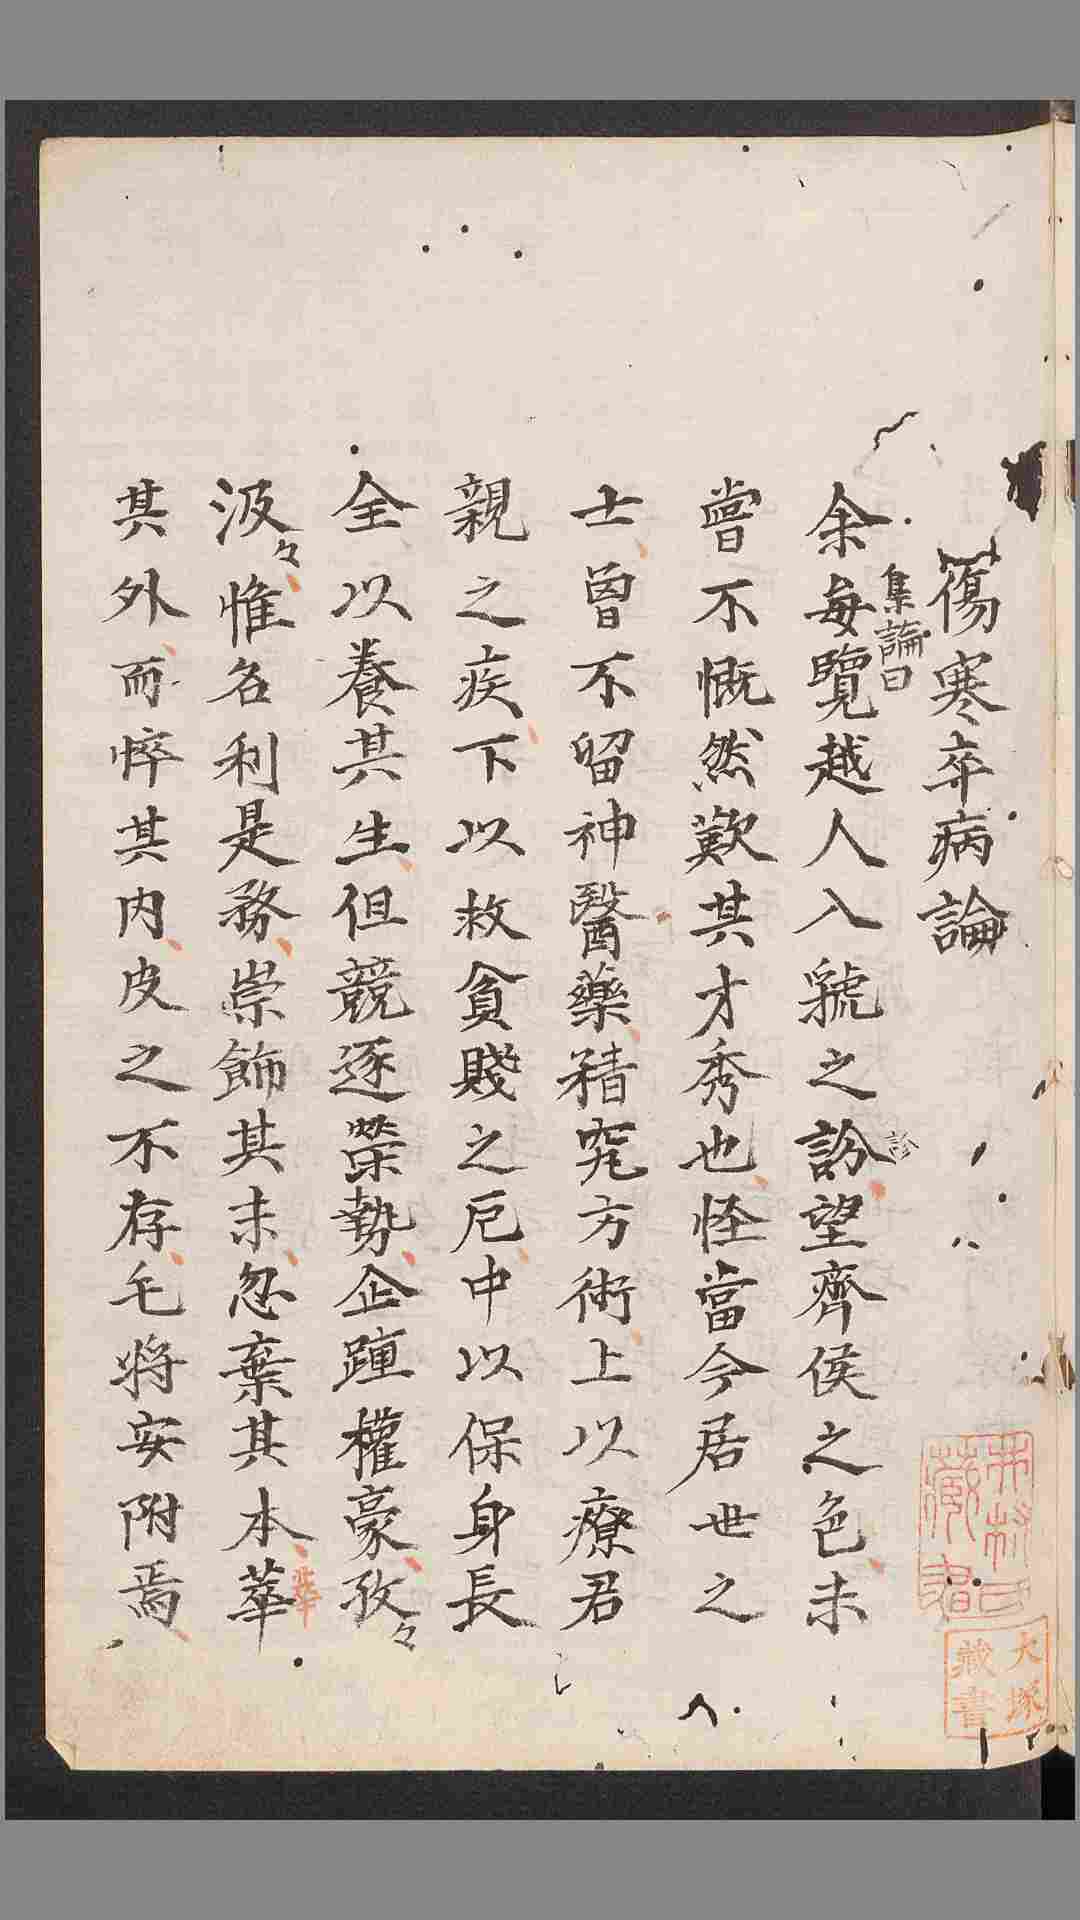 傷寒卒病論
集論曰
余每覽越人入虢之訡望齊侯之色未
診
嘗不慨然歎其才秀也怪當今居世之
士曾不留神醫藥精究方術上以療君
親之疾下以救貧賤之厄中以保身長
全以養其生但競逐榮勢企踵權豪孜々
汲々惟名利是務崇飾其末忽棄其本華
華
其外而悴其内皮之不存毛将安附焉
大塚
藏書